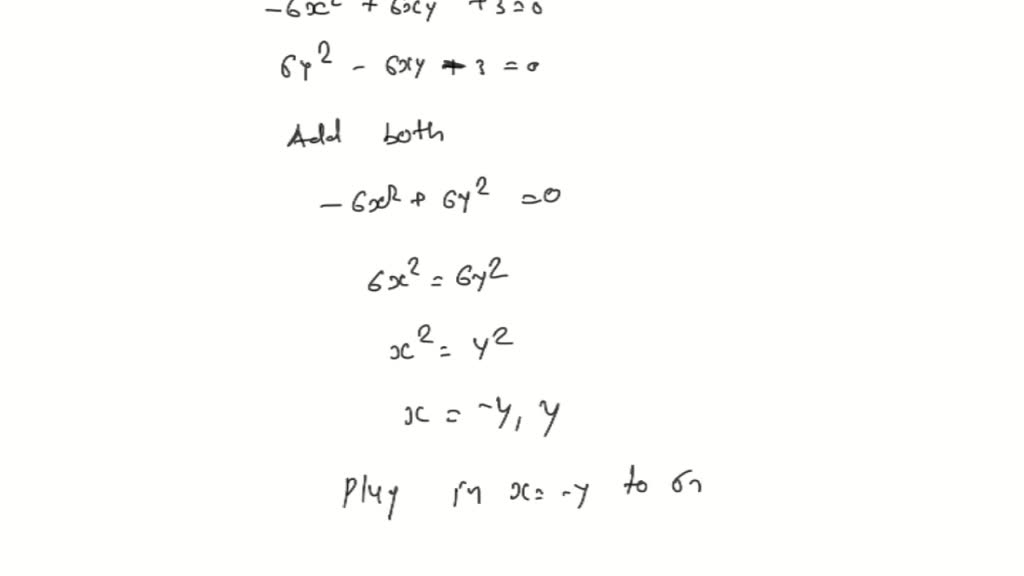 -6x² + 6xy + 3 = 0
6y² - 6xy - 3 = 0
Add both
-6x² + 6y² = 0
6x² = 6y²
x² = y²
x = -y, y
Plug in x = -y to